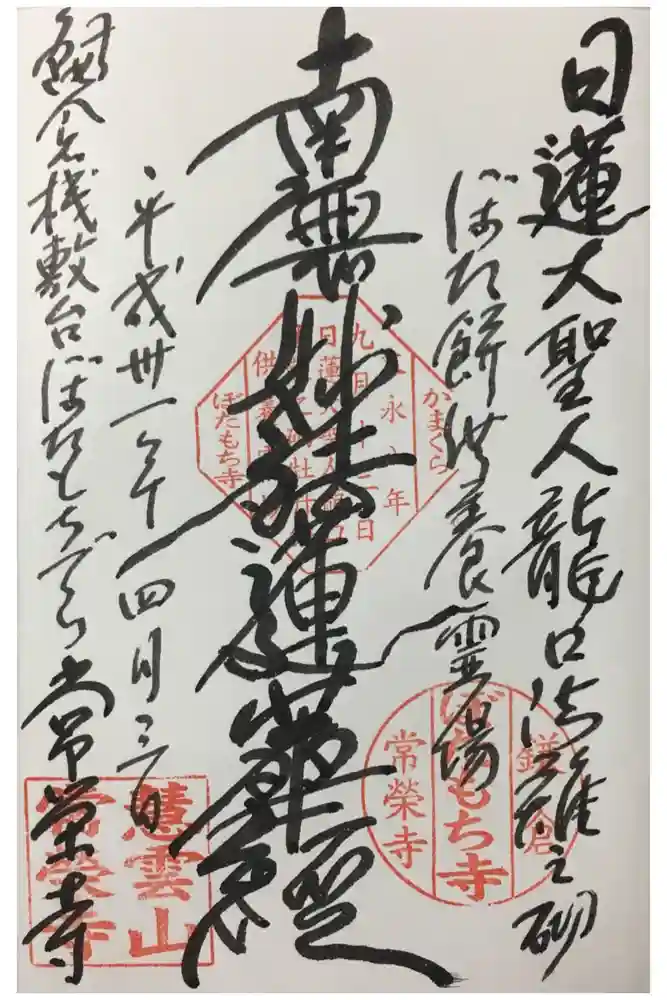 日蓮大聖人龍口法難之砌
ぼた餅供養霊場
南無妙法蓮華経
平成卅一年四月三日
鎌倉桟敷台ぼたもちでら常栄寺
かまくら
永 年
九月十二日
日蓮
供養
ぼたもち寺
鎌倉
ぼたもち寺
常榮寺
慧雲山
常榮寺